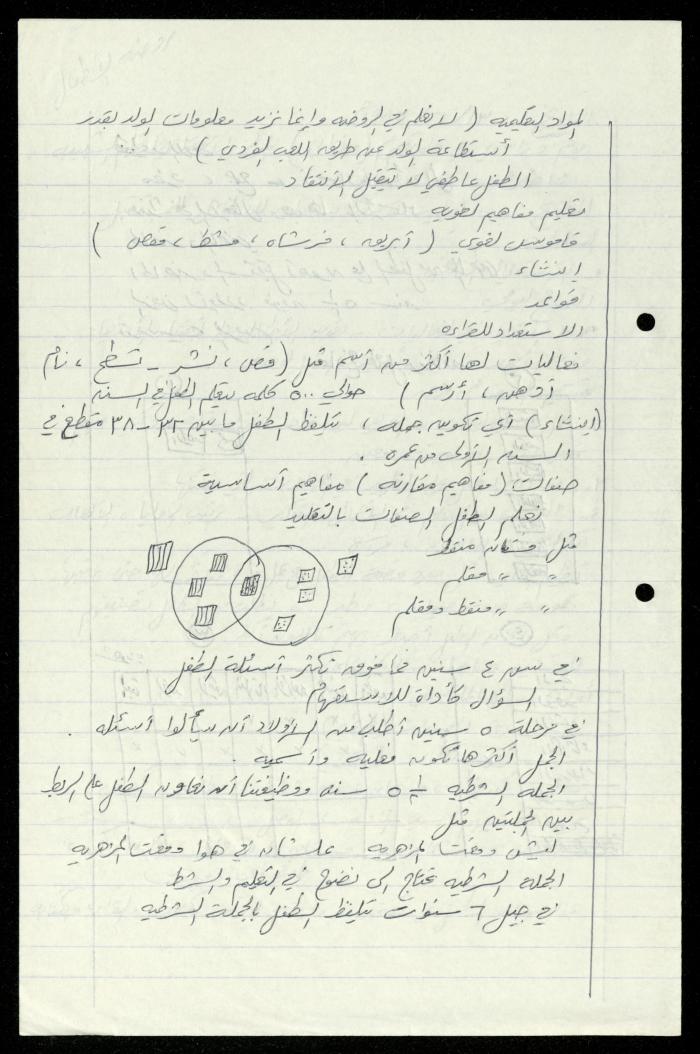 المواد التعليمية ( لا نعلم في الروضه وإنما نزيد معلومات الولد بقدر
أستطاعة الولد عن طريق اللعب الفردي )
الطفل عاطفي لا يتقبل الأنتقاد
تعليم مفاهيم لغويه
قاموس لغوي ( أبريق ، فرشاه ، مشط ، مقص )
إنشاء
قواعد
الاستعداد للقراءه
فعاليات لها أكثر من أسم مثل ( قص ، نشر - تسطح ، نام
أدهن ، أرسم ) حوالي ٥٠٠ كلمه يتعلم الطفل في السنه
(إنشاء) أي تكوين جمله ، يتلفظ الطفل ما بين ٣٢ - ٣٨ مقطع في
السنه الأولى من عمره .
صفات ( مفاهيم مقارنه ) مفاهيم أساسية
نعلم الطفل الصفات بالتقليد
مثل فستان منقط
" " مقلم
" " منقط ومقلم
في سن ٤ سنين فما فوق تكثر أسئلة الطفل
السؤال كأداة للاستفهام
في مرحلة ٥ سنين أطلب من الأولاد أن يسألوا أسئله .
الجمل أكثرها تكون فعليه وأسميه .
الجملة الشرطيه ٥ ١/٢ سنه ووظيفتنا أن نعاون الطفل على الربط
بين الجملتين مثل
ليش وقعت المزهريه علشان في هوا وقعت المزهريه
الجمله الشرطيه تحتاج الى نضوج في التعليم والشرط
في جيل ٦ سنوات يتلفظ الطفل بالجملة الشرطيه